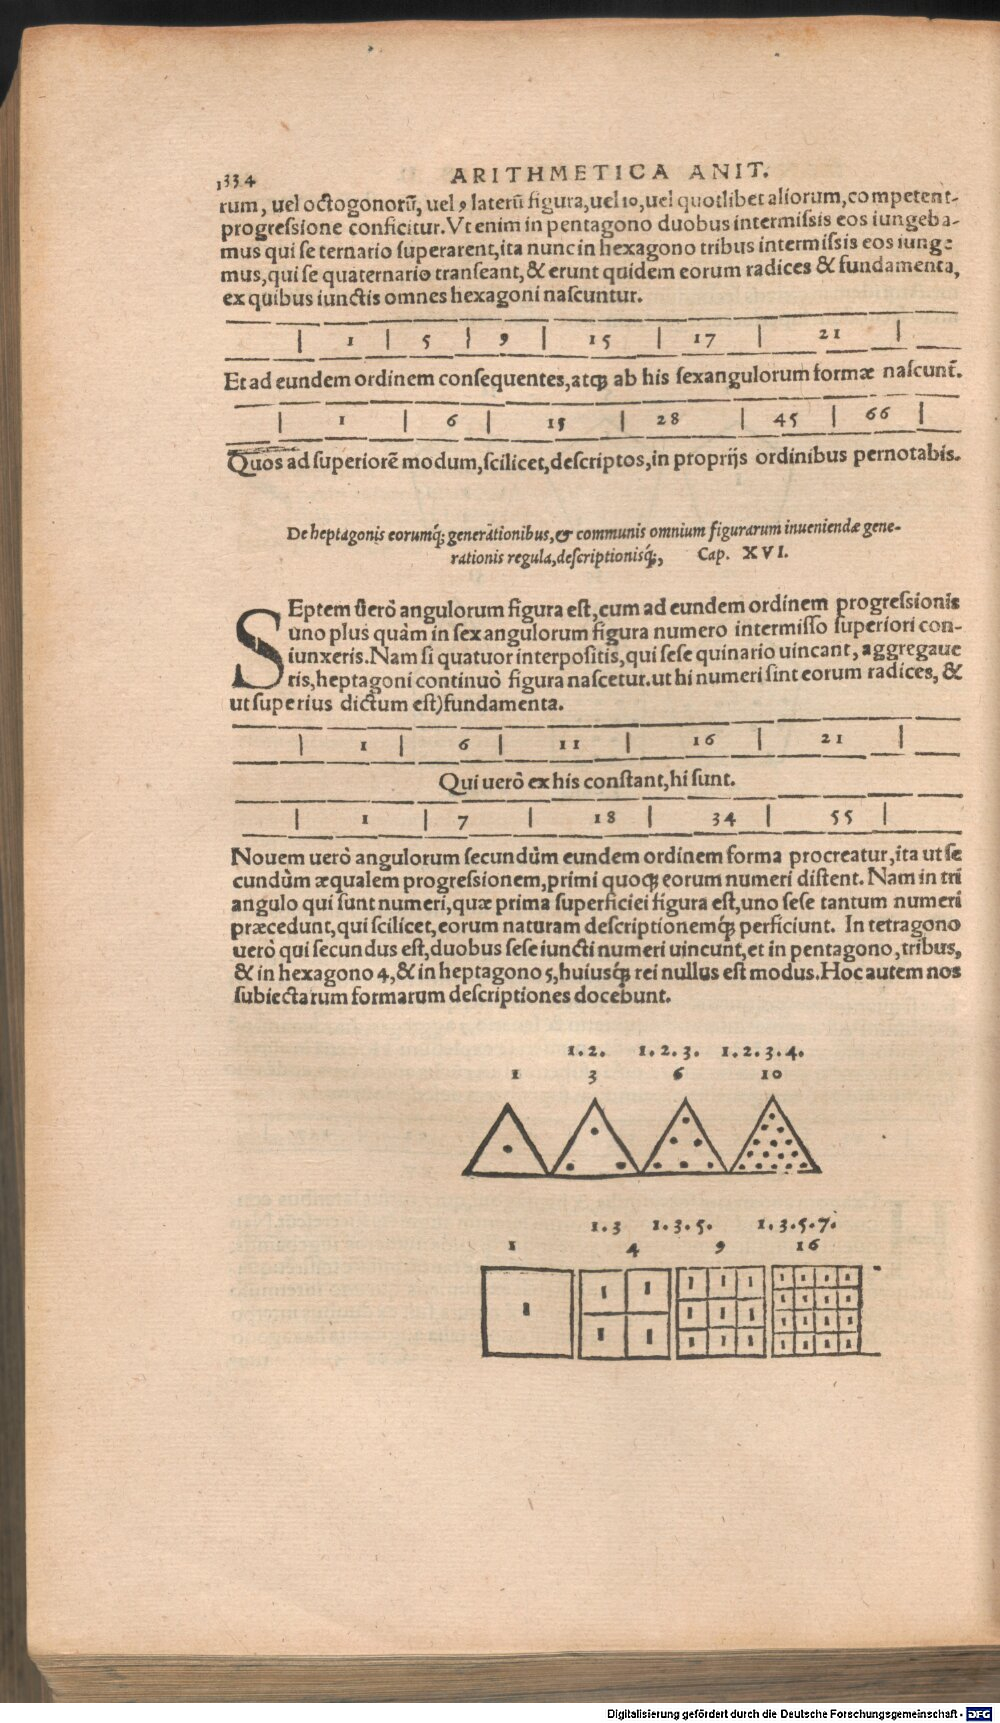 1334 ARITHMETICA ANIT.
rum, uel octogonorũ, uel 9 laterũ figura, uel 10, uel quotlibet aliorum, competent-
progreſsione conficitur. Vt enim in pentagono duobus intermiſsis eos iungeba-
mus qui ſe ternario ſuperarent, ita nunc in hexagono tribus intermiſsis eos iunge
mus, qui ſe quaternario tranſeant, & erunt quidem eorum radices & fundamenta,
ex quibus iunctis omnes hexagoni naſcuntur.
| 1 | 5 | 9 | 15 | 17 | 21 |
Et ad eundem ordinem conſequentes, atq́; ab his ſexangulorum formæ naſcunt̃.
| 1 | 6 | 15 | 28 | 45 | 66 |
Quos ad ſuperiorẽ modum, ſcilicet, deſcriptos, in proprijs ordinibus pernotabis.
De heptagonis eorumq́; generationibus, & communis omnium figurarum inueniendæ gene-
rationis regula, deſcriptionisq́;, Cap. XVI.
SEptem ũerò angulorum figura eſt, cum ad eundem ordinem progreſsionis
uno plus quàm in ſexangulorum figura numero intermiſſo ſuperiori con-
iunxeris. Nam ſi quatuor interpoſitis, qui ſeſe quinario uincant, aggregaue
ris, heptagoni continuò figura naſcetur. ut hi numeri ſint eorum radices, &
ut ſuperius dictum eſt) fundamenta.
| 1 | 6 | 11 | 16 | 21 |
Qui uerò ex his conſtant, hi ſunt.
| 1 | 7 | 18 | 34 | 55 |
Nouem uerò angulorum ſecundùm eundem ordinem forma procreatur, ita ut ſe
cundùm æqualem progreſsionem, primi quoq; eorum numeri diſtent. Nam in tri
angulo qui ſunt numeri, quæ prima ſuperficiei figura eſt, uno ſeſe tantum numeri
præcedunt, qui ſcilicet, eorum naturam deſcriptionemq́; perficiunt. In tetragono
uerò qui ſecundus eſt, duobus ſeſe iuncti numeri uincunt, et in pentagono, tribus,
& in hexagono 4, & in heptagono 5, huiusq́; rei nullus eſt modus. Hoc autem nos
ſubiectarum formarum deſcriptiones docebunt.
1.2. 1.2.3. 1.2.3.4.
1 3 6 10
1.3 1.3.5. 1.3.5.7.
1 4 9 16
1 1 1 1 1 1 1 1 1 1
1 1 1 1 1 1 1
1 1 1 1 1 1 1 1 1
1 1 1 1
Digitalisierung gefördert durch die Deutsche Forschungsgemeinschaft - DFG